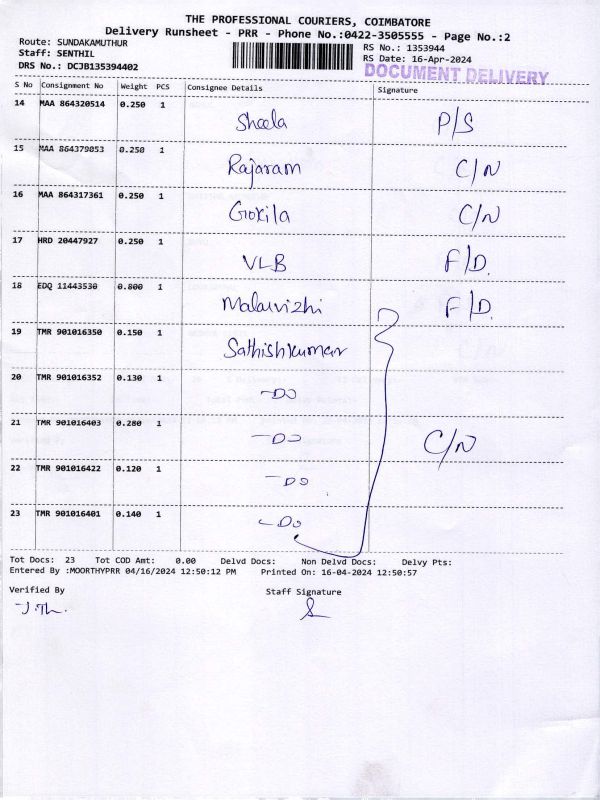 THE PROFESSIONAL COURIERS, COIMBATORE
Delivery Runsheet - PRR - Phone No.:0422-3505555 - Page No.:2
Route: SUNDAKAMUTHUR
Staff: SENTHIL
DRS No.: DCJB135394402
RS No.: 1353944
RS Date: 16-Apr-2024
DOCUMENT DELIVERY
S No Consignment No Weight PCS Consignee Details Signature
14 MAA 864320514 0.250 1 Sheela P/S
15 MAA 864379053 0.250 1 Rajaram C/N
16 MAA 864317361 0.250 1 Gokila C/N
17 HRD 20447927 0.250 1 VLB F/D.
18 EDQ 11443530 0.800 1 Malarvizhi F/D.
19 TMR 901016350 0.150 1 Sathishkumar
20 TMR 901016352 0.130 1 -DO
21 TMR 901016403 0.280 1 -DO C/N
22 TMR 901016422 0.120 1 -DO
23 TMR 901016401 0.140 1 -Do
Tot Docs: 23 Tot COD Amt: 0.00 Delvd Docs: Non Delvd Docs: Delvy Pts:
Entered By :MOORTHYPRR 04/16/2024 12:50:12 PM Printed On: 16-04-2024 12:50:57
Verified By Staff Signature